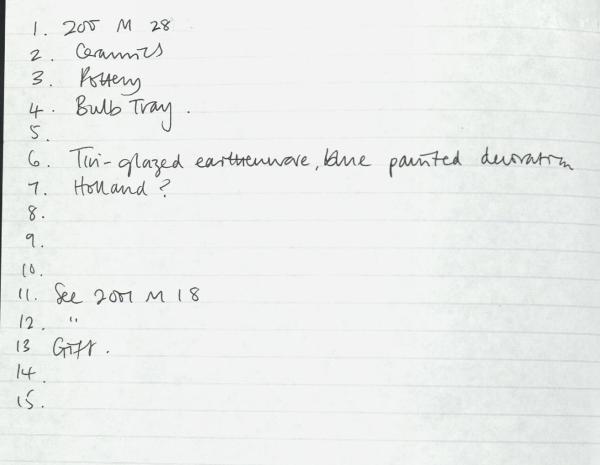 1. 2001 M 28
2. Ceramics
3. Pottery
4. Bulb Tray.
5.
6. Tin-glazed earthenware, blue painted decoration
7. Holland?
8.
9.
10.
11. See 2001 M 18
12. "
13 Gift.
14.
15.